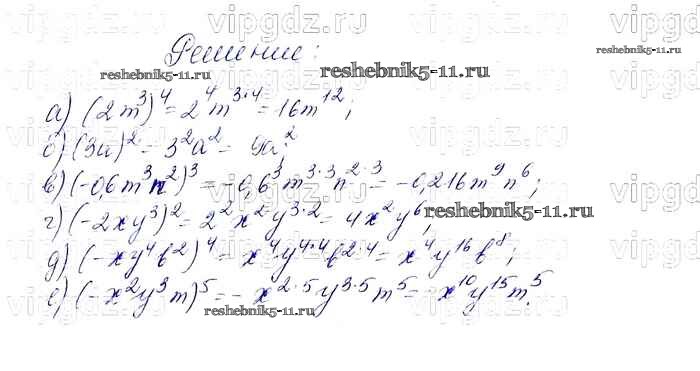 vipgdz.ru vipgdz.ru vipgdz.ru
Решение:
reshebnik5-11.ru
reshebnik5-11.ru
reshebnik5-11.ru
а) (2m³)⁴ = 2⁴m³˙⁴ = 16m¹²;
б) (3a)² = 3²a² = 9a²
в) (-0,6m³n²)³ = -0,6³m³˙³n²˙³ = -0,216m⁹n⁶;
г) (-2xy³)² = 2²x²y³˙² = 4x²y⁶;
reshebnik5-11.ru
д) (-xy⁴b²)⁴ = x⁴y⁴˙⁴b²˙⁴ = x⁴y¹⁶b⁸;
е) (-x²y³m)⁵ = -x²˙⁵y³˙⁵m⁵ = -x¹⁰y¹⁵m⁵.
reshebnik5-11.ru
vipgdz.ru vipgdz.ru vipgdz.ru